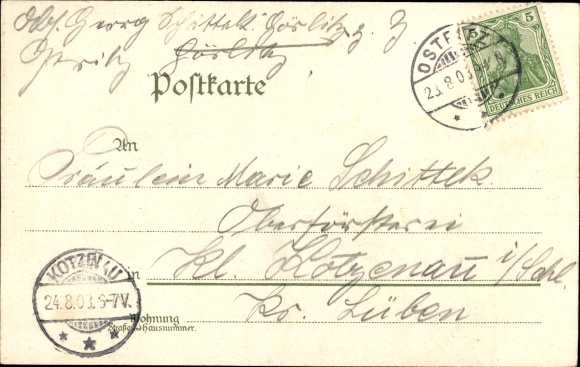 Abs. Georg Schittek Görlitz z. Z.
Görlitz
Postkarte
OSTRITZ
23.8.03
5
DEUTSCHES REICH
An
Fräulein Marie Schittek
Oberförsterei
in Kl. Kotzenau i/Schl.
Kr. Lüben
KOTZENAU
24.8.03.6-7V.
Wohnung
(Straße und Hausnummer)